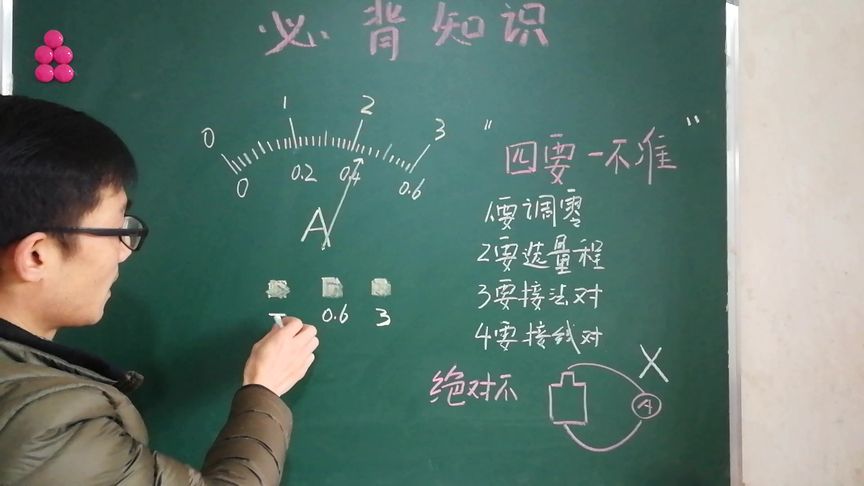 必背知识
0 1 2 3
0 0.2 0.4 0.6
A
- 0.6 3
"四要一不准"
1要调零
2要选量程
3要接法对
4要接线对
绝对不
X
A